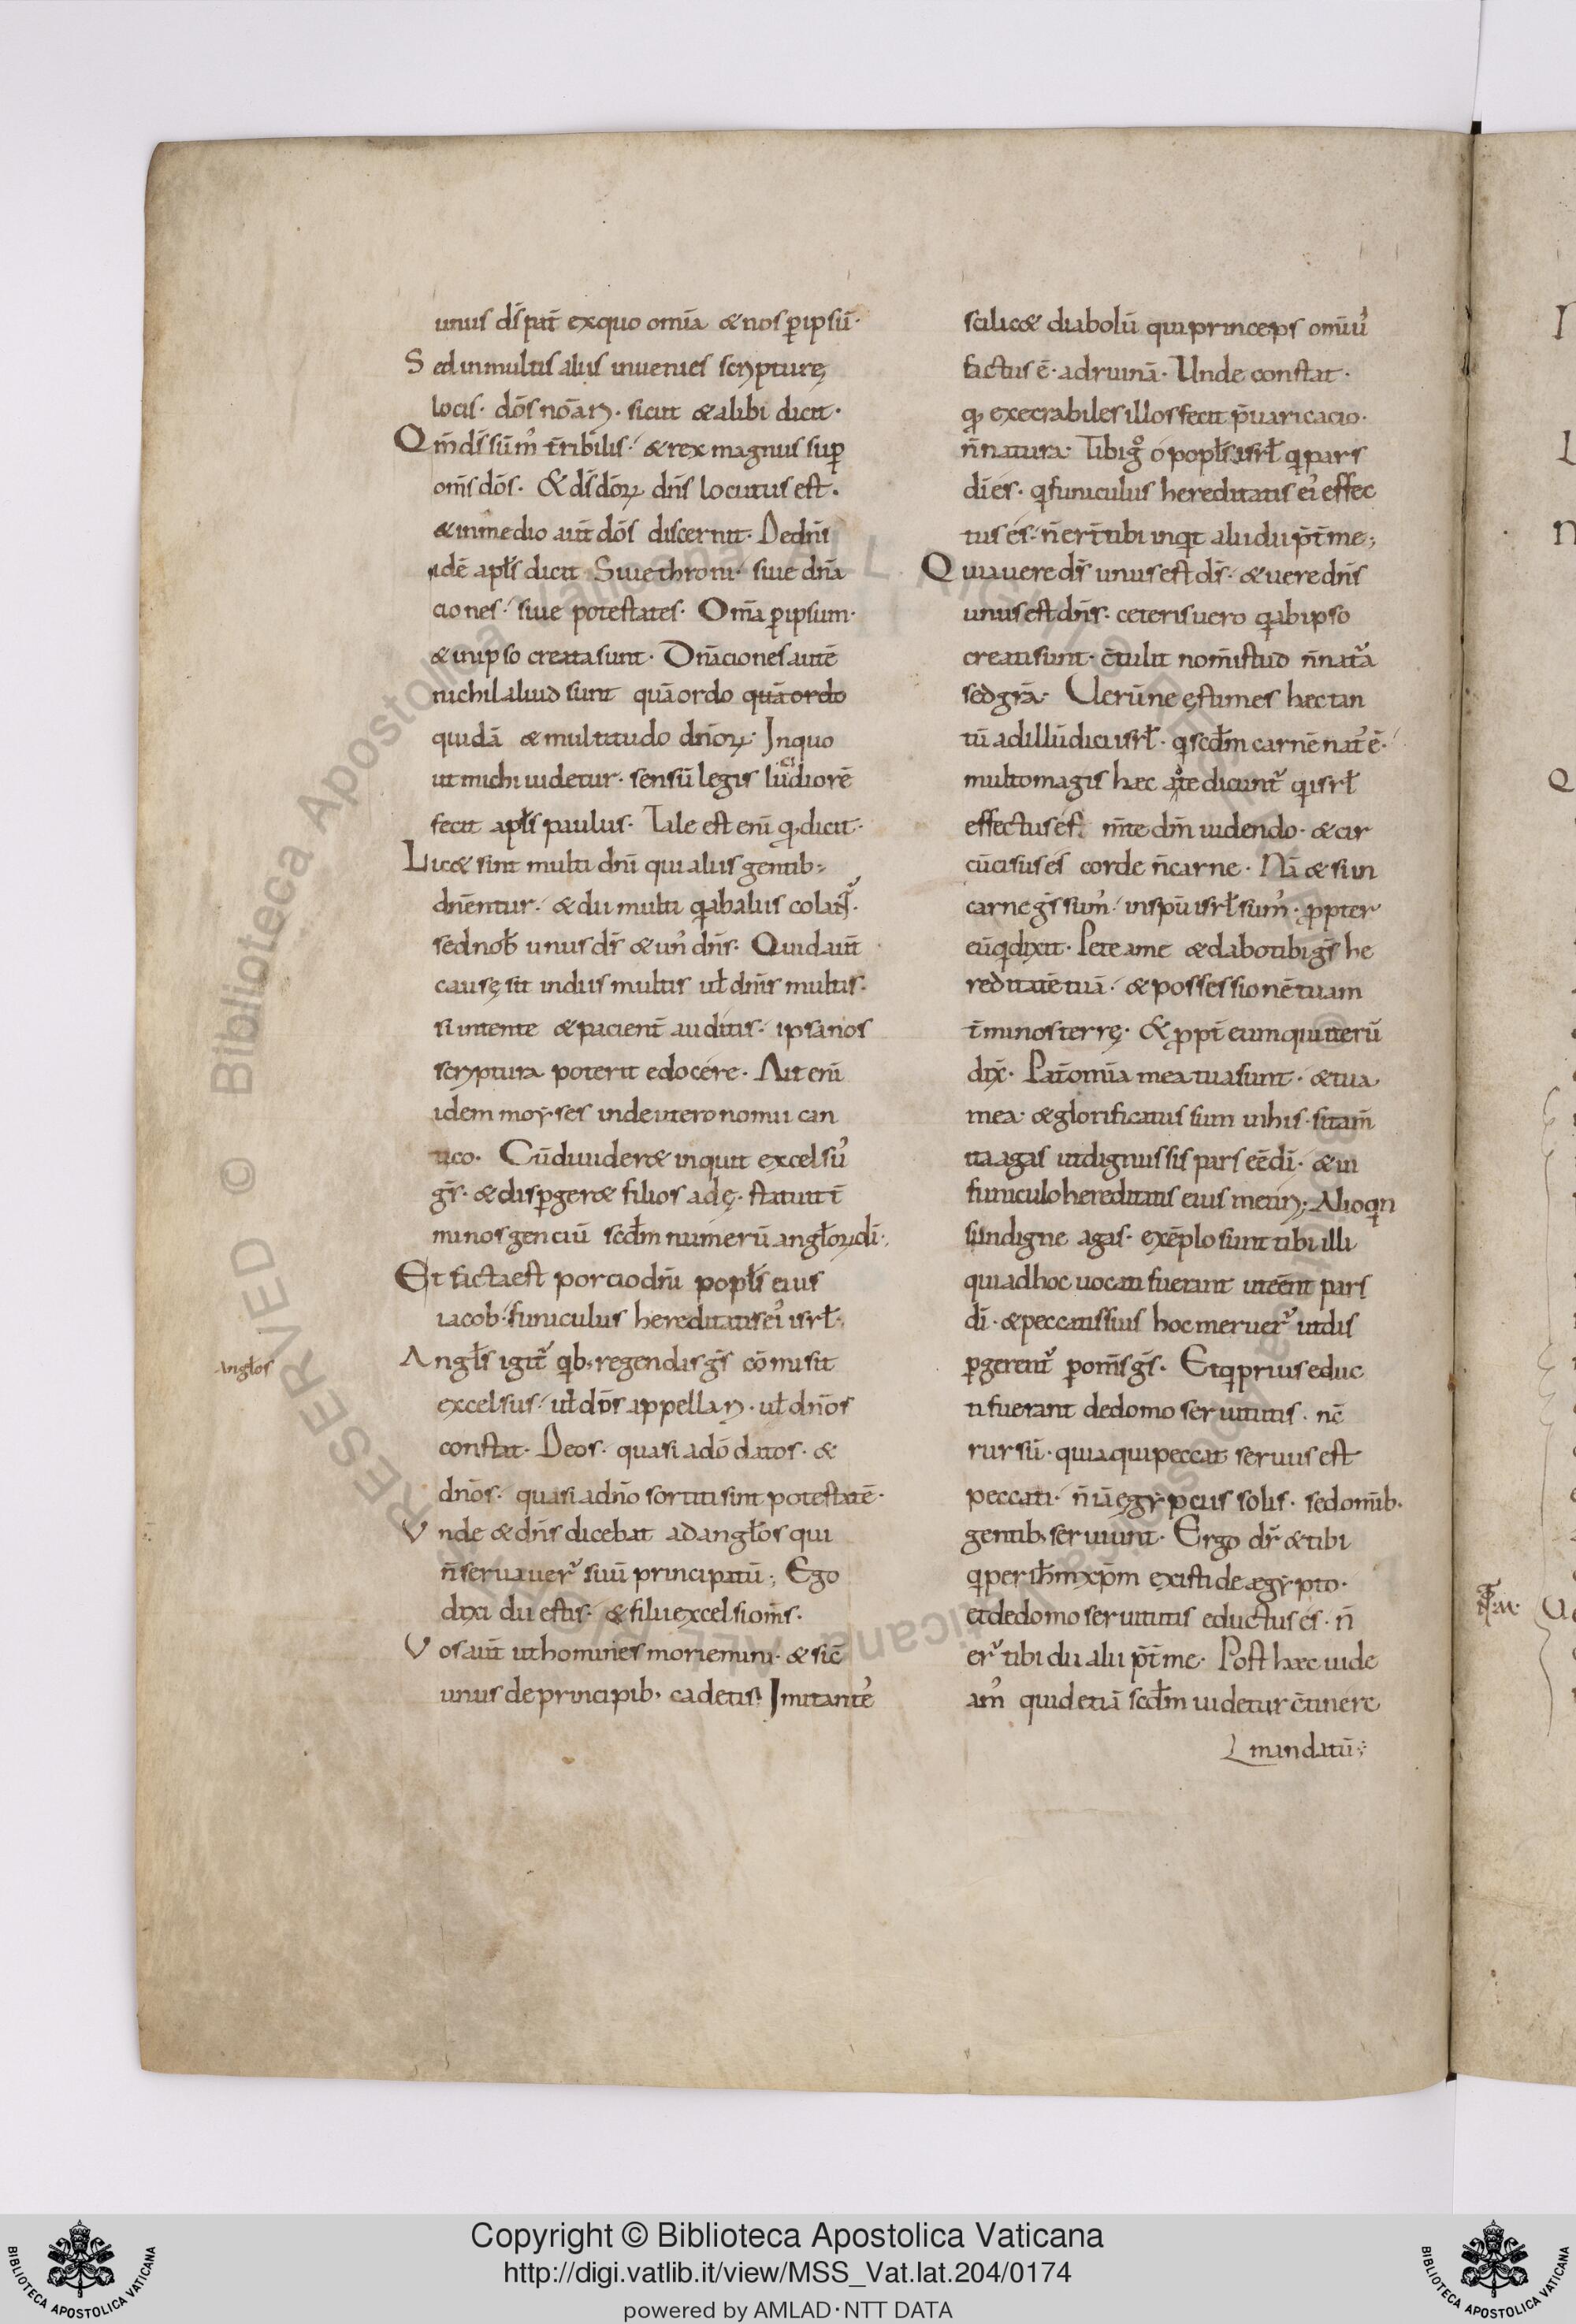 unus dı̄ pat̄ exquo om̄ia & nos ꝑipsū·
Sed inmultis aliis inuenies scripturę
locis· dōs nōari· sicut & alibi dicit·
Qm̄ dı̄s sūm᾽ t̄ribilis· & rex magnus suꝑ
om̄s dōs· & dı̄s dōrꝝ dn̄s locutus est·
& inmedio aut̄ dōs discernit· De dn̄is
idē apl̄s dicit Siue throni· siue dn̄a
ciones· siue potestates· Om̄a ꝑipsum·
& inipso creata sunt· Dn̄aciones autē
nichil aliud sunt quā ordo quā ordo
quidā & multitudo dn̄orꝝ· Inquo
ut michi uidetur· sensū legis lucidiorē
fecit apl̄s paulus· Tale est enī qđ dicit·
Lic& sint multi dn̄i qui aliis gentib;
dn̄entur· & dii multi q abaliis colant᾽·
sed nob̄ unus ds̄ & un᾽ dn̄s· Quid aut̄
causę sit indiis multis ul̄ dn̄is multis·
si intente & pacient̄ auditis· ipsa nos
scriptura poterit edocere· Ait enī
idem moẏses indeuteronomii can
tico· Cū diuider& inquit excelsu᾽
gs̄· & disꝑger& filios adę· statuit t̄
minos genciū scd̄m numerū angl̄orꝝ dı̄·
Et facta est porcio dn̄i popl̄s eius
iacob· funiculus hereditatis ei᾽ isrl̄·
Angl̄s igit᾽ qb; regendas gs̄ cōmisit
excelsus· ul̄ dōs appellari· ul̄ dn̄os
constat· Deos· quasi adō datos· &
dn̄os· quasi adn̄o sortiti sint potestatē·
Vnde & dn̄s dicebat ad angl̄os qui
n̄ seruauer᾽ suū principatū; Ego
dixi dii estis· & filii excelsi om̄s·
Vos aut̄ ut homines moriemini· & sic̄
unus de principib; cadetis· Imitante᾽
Angl̄os
scilic& diabolū qui princeps om̄iu᾽
factus ē· adruinā· Unde constat·
qđ execrabiles illos fecit p̄uaricacio·
n̄ natura· Tibi g° o popl̄s isrl̄ q pars
dı̄ es· q funiculus hereditatis ei᾽ effec
tus es· n̄ er̄t tibi inqt alii dii p̄t̄ me;
Quia uere ds̄ unus est ds̄· & uere dn̄s
unus est dn̄s· ceteris uero q abipso
creati sunt· c̄tulit nom̄ istud n̄ nat᾽a
sed gr̄a· Uerū ne ęstimes hec tan
tū ad illū dici isrl̄· q scd̄m carnē nat᾽ ē·
multomagis hec a te dicunt᾽ q isrl̄
effectus es· m̄te dm̄ uidendo· & cir
cūcisus es corde n̄ carne· Nā & si in
carne gs̄ sum᾽· inspū isrl̄ sum᾽· ꝓpter
eū q dixit· Pete ame & dabo tibi gs̄ he
reditatē tuā· & possessionē tuam
t̄minos terrę· & ꝓpt̄ eum qui iterū
dix̄· Pat̄ om̄ia mea tua sunt· & tua
mea· & glorificatus sum inhis· si tam̄
ita agas ut dignus sis pars eē dı̄· & in
funiculo hereditatis eius metiri; Alioqn
si indigne agas· exēplo sunt tibi illi
qui adhoc uocati fuerant ut eēnt pars
dı̄· & peccatis suis hoc meruer᾽ ut dis
ꝑgerent᾽ ꝑom̄s gs̄· Et q prius educ
ti fuerant dedomo seruitutis· nc̄
rursū· quia qui peccat seruus est
peccati· n̄ iā ęgẏpciis solis· sed om̄ib·
gentib; seruiunt· Ergo dr̄ & tibi
q per ih̄m xp̄m existi de ægẏpto·
et dedomo seruitutis eductus es· n̄
er᾽ tibi dii alii p̄t̄ me· Post hæc uide
am᾽ quid etiā scd̄m uidetur c̄tinere
mandatū;
Copyright © Biblioteca Apostolica Vaticana
http://digi.vatlib.it/view/MSS_Vat.lat.204/0174
powered by AMLAD·NTT DATA
BIBLIOTECA APOSTOLICA VATICANA
BIBLIOTECA APOSTOLICA VATICANA